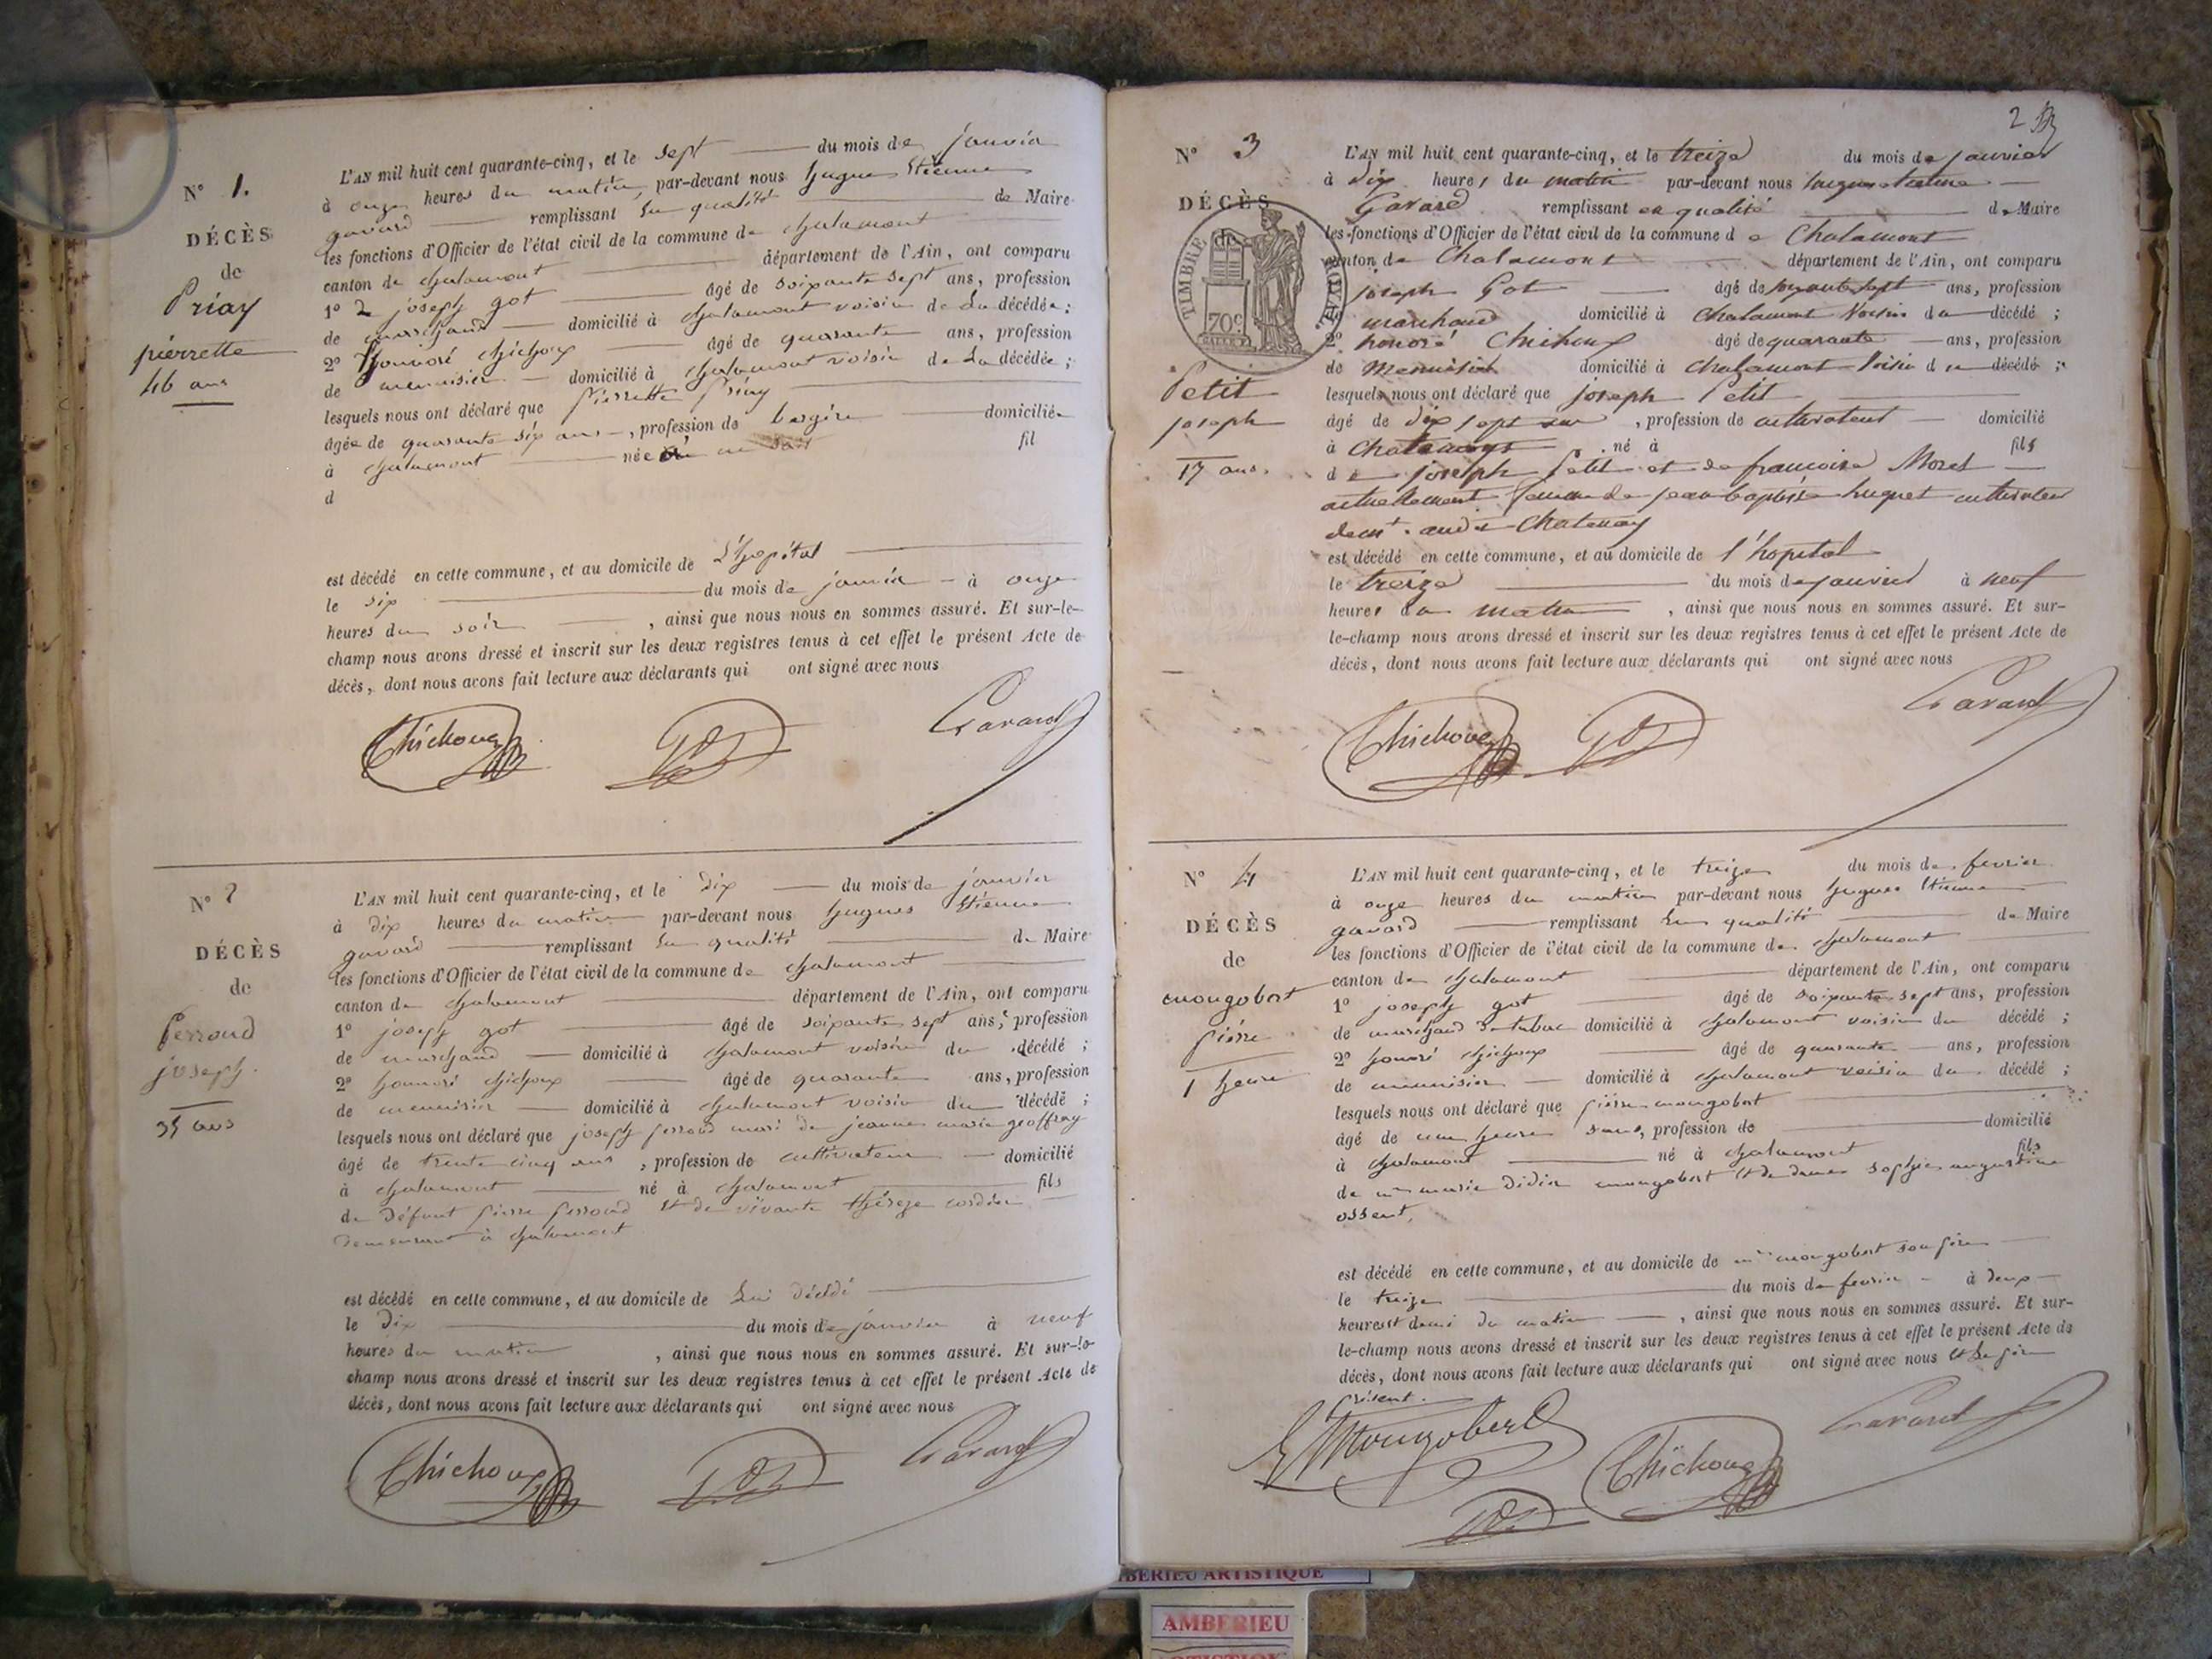 N° 1.
DÉCÈS
de
Priay
pierrette
46 ans
L'AN mil huit cent quarante-cinq, et le sept du mois de janvier
à onze heures du matin par-devant nous hugues Etienne
gavard remplissant En qualité de Maire
les fonctions d'Officier de l'état civil de la commune de chalamont
canton de chalamont département de l'Ain, ont comparu
1° joseph got âgé de soixante sept ans, profession
de marchand domicilié à chalamont voisin de La décédée ;
2° honnoré chichoux âgé de quarante ans, profession
de menuisier domicilié à chalamont voisin de La décédée ;
lesquels nous ont déclaré que Pierrette Priay
âgée de quarante six ans, profession de bergère domiciliée
à chalamont née on ne sait fil
d
est décédé en cette commune, et au domicile de L'hopital
le six du mois de janvier à onze
heures du soir, ainsi que nous nous en sommes assuré. Et sur-le-
champ nous avons dressé et inscrit sur les deux registres tenus à cet effet le présent Acte de
décès, dont nous avons fait lecture aux déclarants qui ont signé avec nous
Chichoux Got Gavard
N° 2
DÉCÈS
de
Perroud
joseph.
35 ans
L'AN mil huit cent quarante-cinq, et le dix du mois de janvier
à dix heures du matin par-devant nous hugues Etienne
gavard remplissant En qualité de Maire
les fonctions d'Officier de l'état civil de la commune de chalamont
canton de chalamont département de l'Ain, ont comparu
1° joseph got âgé de soixante sept ans, profession
de marchand domicilié à chalamont voisin du décédé ;
2° honnoré chichoux âgé de quarante ans, profession
de menuisier domicilié à chalamont voisin du décédé ;
lesquels nous ont déclaré que joseph perroud mari de jeanne marie geoffray
âgé de trente cinq ans, profession de cultivateur domicilié
à chalamont né à chalamont fils
de défunt pierre perroud Et de vivante thérèze cordier
demeurant à chalamont
est décédé en cette commune, et au domicile de Lui décédé
le dix du mois de janvier à neuf
heures du matin, ainsi que nous nous en sommes assuré. Et sur-le-
champ nous avons dressé et inscrit sur les deux registres tenus à cet effet le présent Acte de
décès, dont nous avons fait lecture aux déclarants qui ont signé avec nous
Chichoux Got Gavard
2
N° 3
DÉCÈS
de
TIMBRE ROYAL
70c
Petit
joseph
17 ans.
L'AN mil huit cent quarante-cinq, et le treize du mois de janvier
à dix heures du matin par-devant nous hugues etienne
Gavard remplissant en qualité de Maire
les fonctions d'Officier de l'état civil de la commune de Chalamont
canton de Chalamont département de l'Ain, ont comparu
joseph Got âgé de soixante sept ans, profession
marchand domicilié à Chalamont Voisin du décédé ;
2° honoré Chichoux âgé de quarante ans, profession
de Menuisier domicilié à Chalamont Voisin du décédé ;
lesquels nous ont déclaré que joseph Petit
âgé de dix sept ans, profession de cultivateur domicilié
à Chatenay né à fils
de joseph Petit et de francoise Morel
actuellement femme de jean baptiste huguet cultivateur
demt. audit Chatenay
est décédé en cette commune, et au domicile de l'hopital
le treize du mois de janvier à neuf
heures du matin, ainsi que nous nous en sommes assuré. Et sur-
le-champ nous avons dressé et inscrit sur les deux registres tenus à cet effet le présent Acte de
décès, dont nous avons fait lecture aux déclarants qui ont signé avec nous
Chichoux Got Gavard
N° 4
DÉCÈS
de
mongobert
pierre
1 heure
L'AN mil huit cent quarante-cinq, et le treize du mois de fevrier
à onze heures du matin par-devant nous hugues Etienne
gavard remplissant En qualité de Maire
les fonctions d'Officier de l'état civil de la commune de chalamont
canton de chalamont département de l'Ain, ont comparu
1° joseph got âgé de soixante sept ans, profession
de marchand de tabac domicilié à chalamont voisin du décédé ;
2° honoré chichoux âgé de quarante ans, profession
de menuisier domicilié à chalamont voisin du décédé ;
lesquels nous ont déclaré que pierre mongobert
âgé de une heure sans, profession de domicilié
à chalamont né à chalamont fils
de mr marie Didier mongobert Et de dame sophie augustine
ossent,
est décédé en cette commune, et au domicile de mr mongobert son père
le treize du mois de fevrier à deux
heures et demi du matin, ainsi que nous nous en sommes assuré. Et sur-
le-champ nous avons dressé et inscrit sur les deux registres tenus à cet effet le présent Acte de
décès, dont nous avons fait lecture aux déclarants qui ont signé avec nous Et Le père
présent.
Mongobert Chichoux Gavard
Got
AMBERIEU ARTISTIQUE
AMBERIEU
ARTISTIQUE